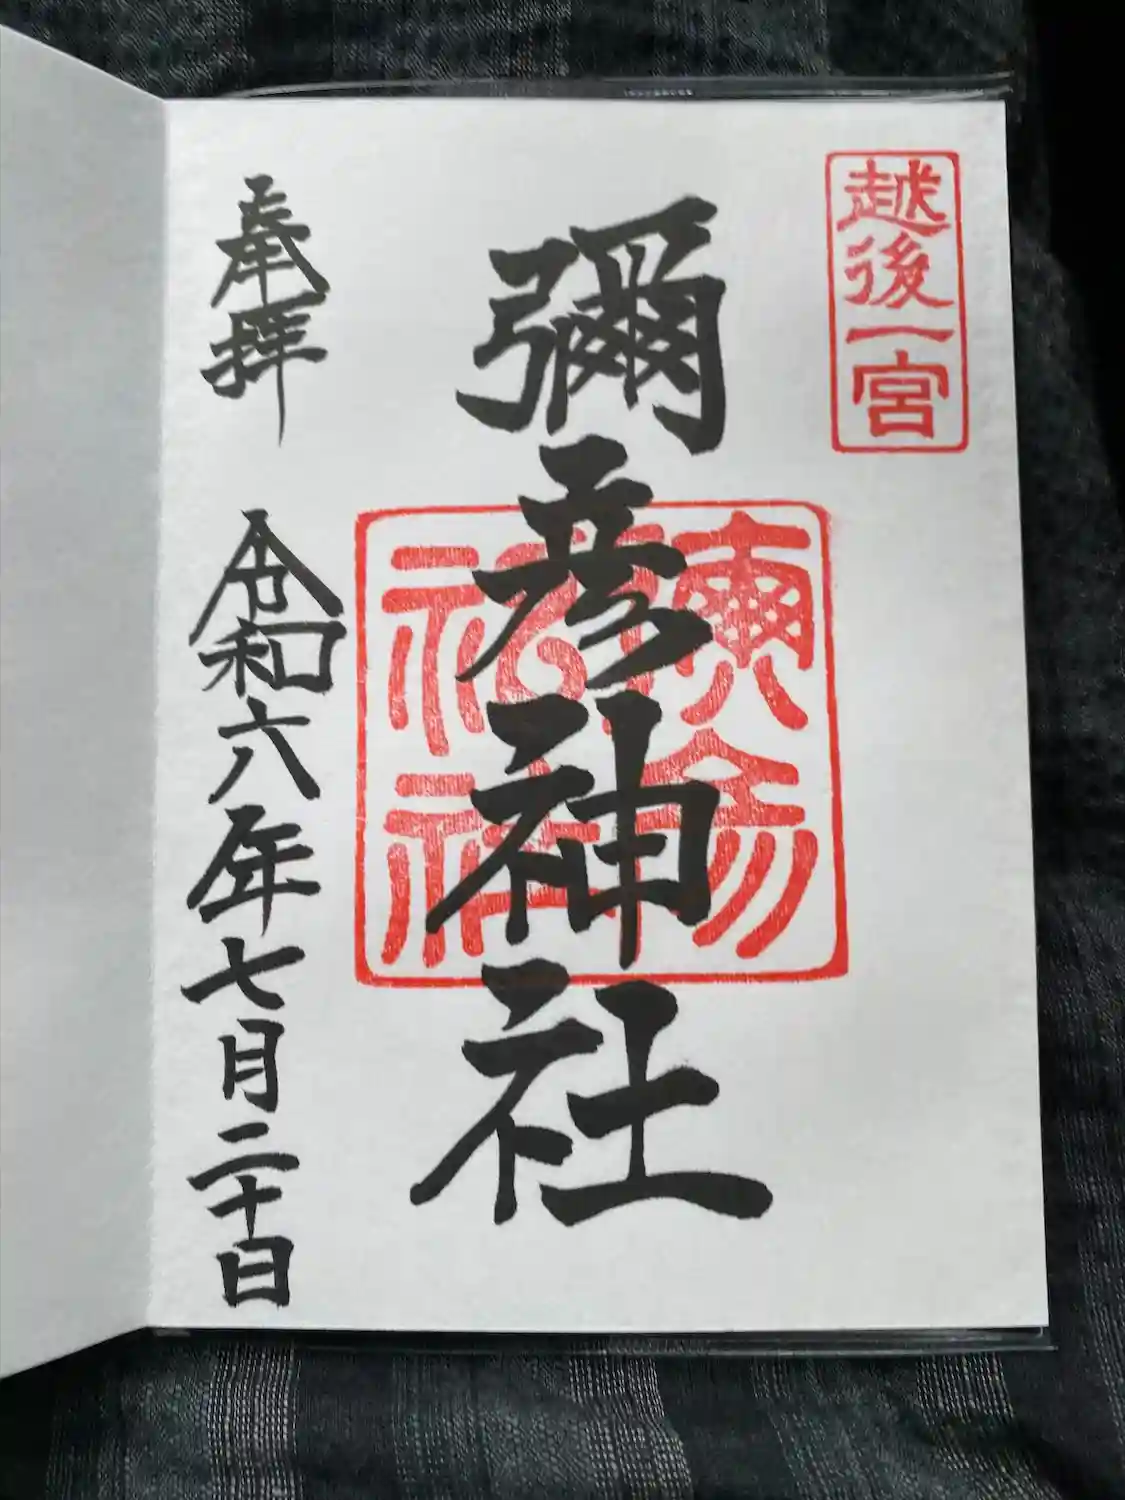 越後一宮
彌彦神社
奉拝
令和六年七月二十日